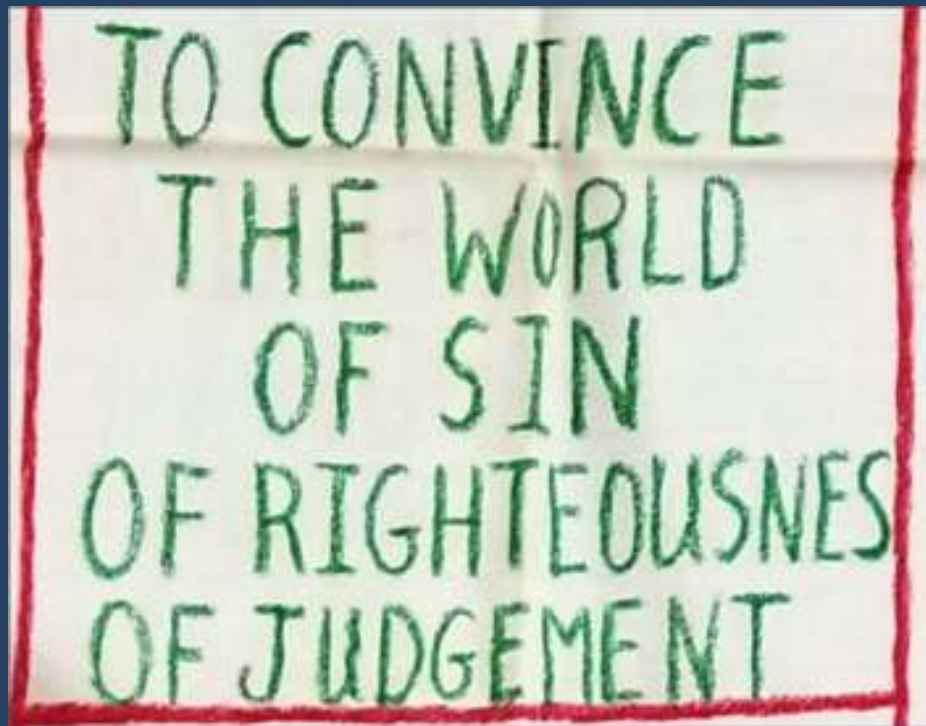 TO CONVINCE
THE WORLD
OF SIN
OF RIGHTEOUSNES
OF JUDGEMENT